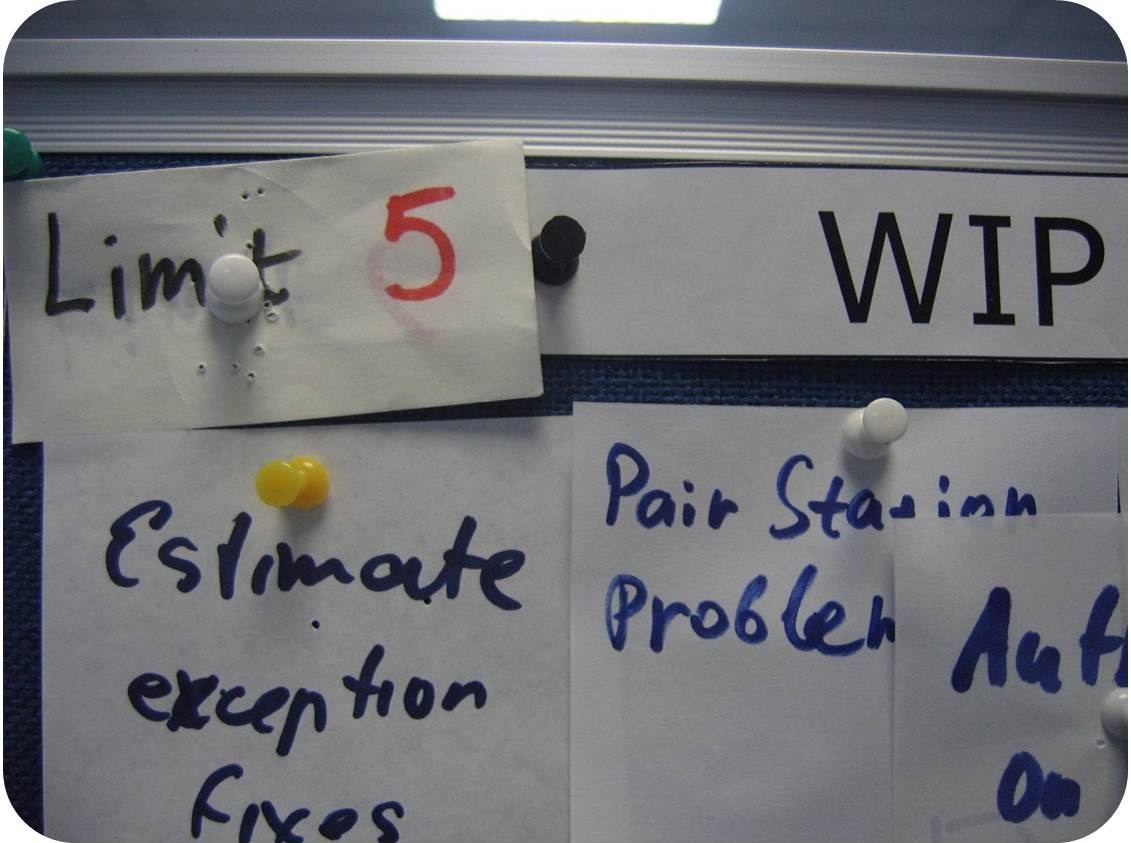 Limit 5
WIP
Estimate
exception
fixes
Pair Station
Problem
Aut
on